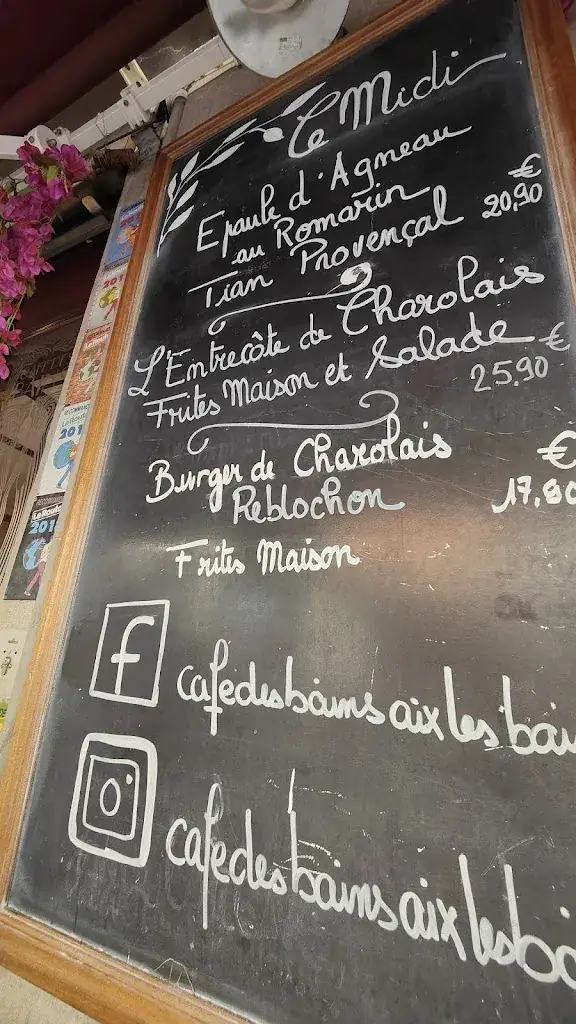 Le Midi
Epaule d'Agneau
au Romarin
Tian Provençal
€
20,90
L'Entrecôte de Charolais
Frites Maison et Salade
€
25.90
Burger de Charolais
Reblochon
€
17,90
Frites Maison
f cafedesbains aix les bai
cafedesbains aix les ba
201
201
201
201